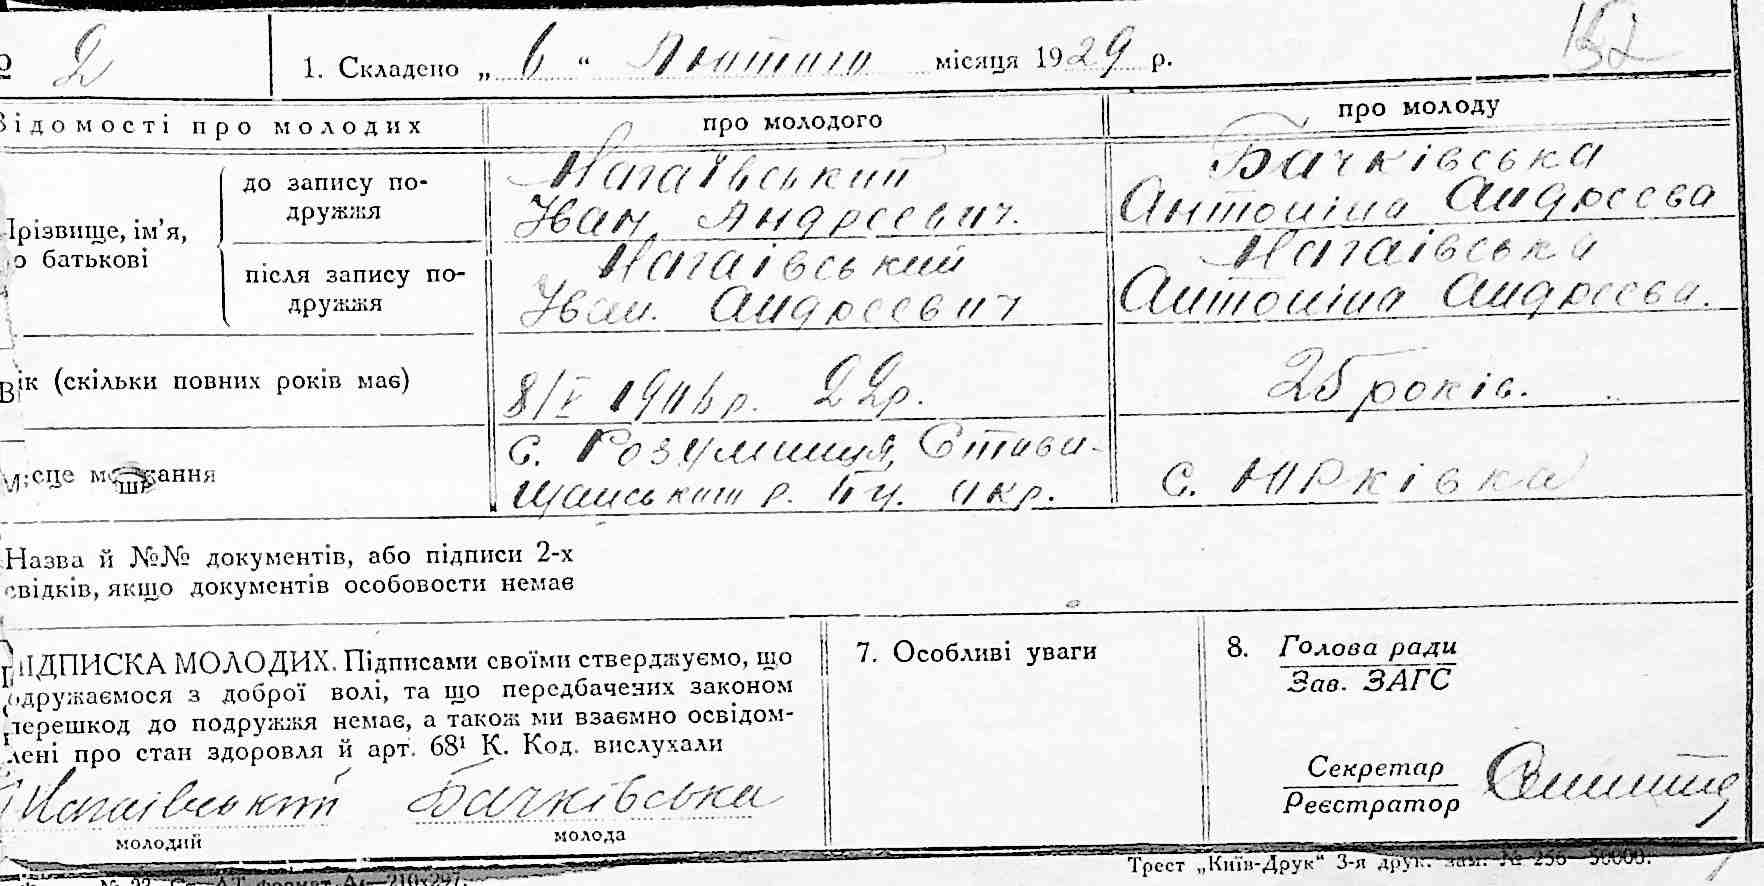 № 2
1. Складено „ 6 “ Лютого місяця 1929 р.
152
Відомості про молодих
про молодого
про молоду
Прізвище, ім’я, по батькові
до запису подружжя
Нагаївський
Іван Андрєєвич.
Бачківська
Антоніна Андрєєва
після запису подружжя
Нагаівський
Іван Андрєєвич
Нагаівська
Антоніна Андрєєва.
Вік (скільки повних років має)
8/V 1906 р. 22 р.
25 років.
Місце мешкання
с. Розумниця, Стави-
щанський р. Бц. окр.
с. Юрківка
Назва й №№ документів, або підписи 2-х
свідків, якщо документів особовости немає
ПІДПИСКА МОЛОДИХ. Підписами своїми стверджуємо, що
одружаємося з доброї волі, та що передбачених законом
перешкод до подружжя немає, а також ми взаємно освідом-
лені про стан здоровля й арт. 68¹ К. Код. вислухали
Нагаівський
молодий
Бачківська
молода
7. Особливі уваги
8. Голова ради
Зав. ЗАГС
Секретар
Реєстратор
Трест „Київ-Друк“ 3-я друк. зам. № 256—50000.